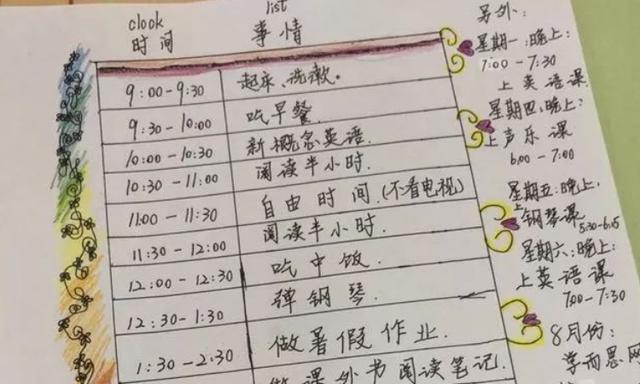 clook
时间
list
事情
9:00-9:30 起床、洗漱。
9:30-10:00 吃早餐
10:00-10:30 新概念英语.
10:30-11:00 阅读半小时.
11:00-11:30 自由时间.(不看电视)
11:30-12:00 阅读半小时.
12:00-12:30 吃中饭.
12:30-1:30 弹钢琴.
1:30-2:30 做暑假作业.
做课外书阅读笔记.
另外:
星期一:晚上:
7:00-7:30
上英语课
星期四:晚上:
上声乐课
6:00-7:00
星期五:晚上,
上钢琴课
5:30-6:15
星期六:晚上:
上英语课
7:00-7:30
8月份:
学而思网